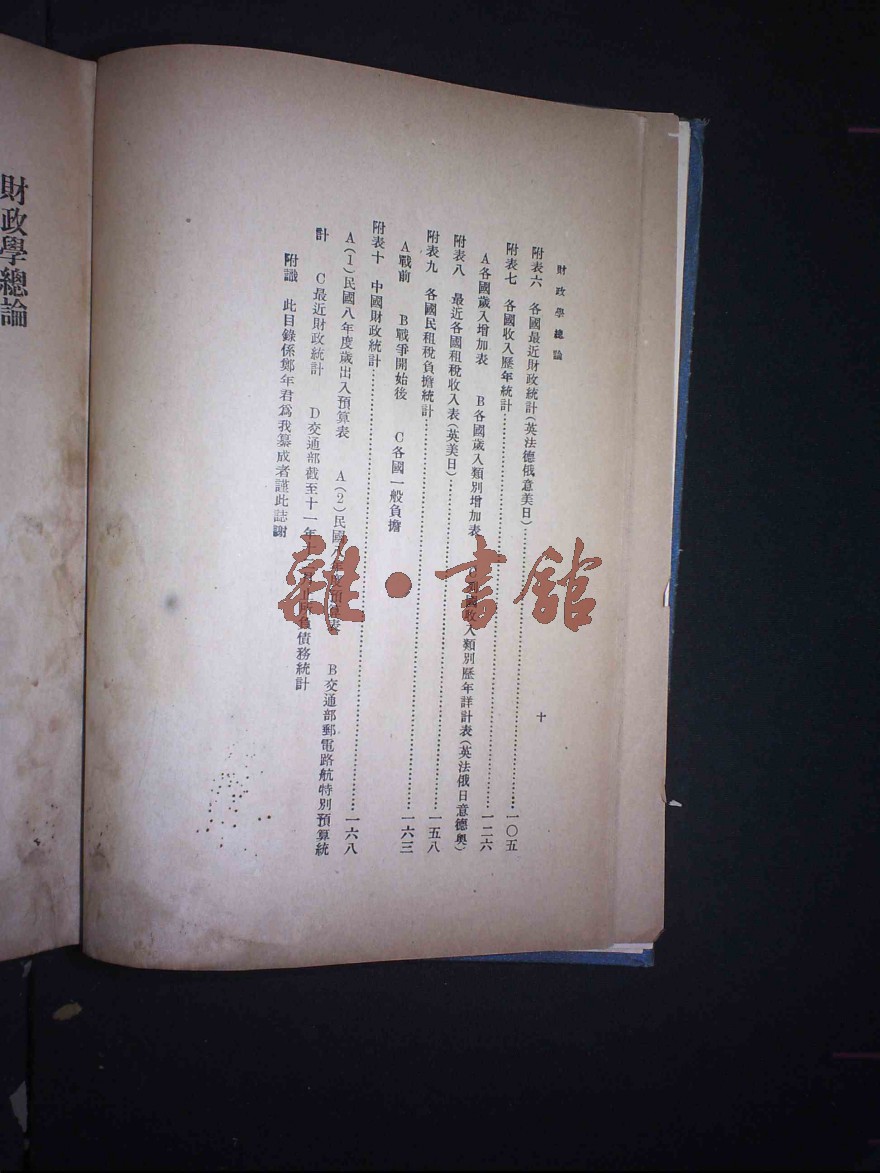 財政學總論
十
附表六 各國最近財政統計(英法德俄意美日)……一〇五
附表七 各國收入歷年統計……一二六
A各國歲入增加表 B各國歲入類別增加表 國收入類別歷年詳計表(英法俄日意德奧)
附表八 最近各國租稅收入表(英美日)……一五八
附表九 各國民租稅負擔統計……一六三
A戰前 B戰爭開始後 C各國一般負擔
附表十 中國財政統計……一六八
A(1)民國八年度歲出入預算表 A(2)民國 年度預算表 B交通部郵電路航特別預算統
計 C最近財政統計 D交通部截至十一年十 負債務統計
附識 此目錄係鄭年君爲我纂成者謹此誌謝
財政學總論
雜·書館